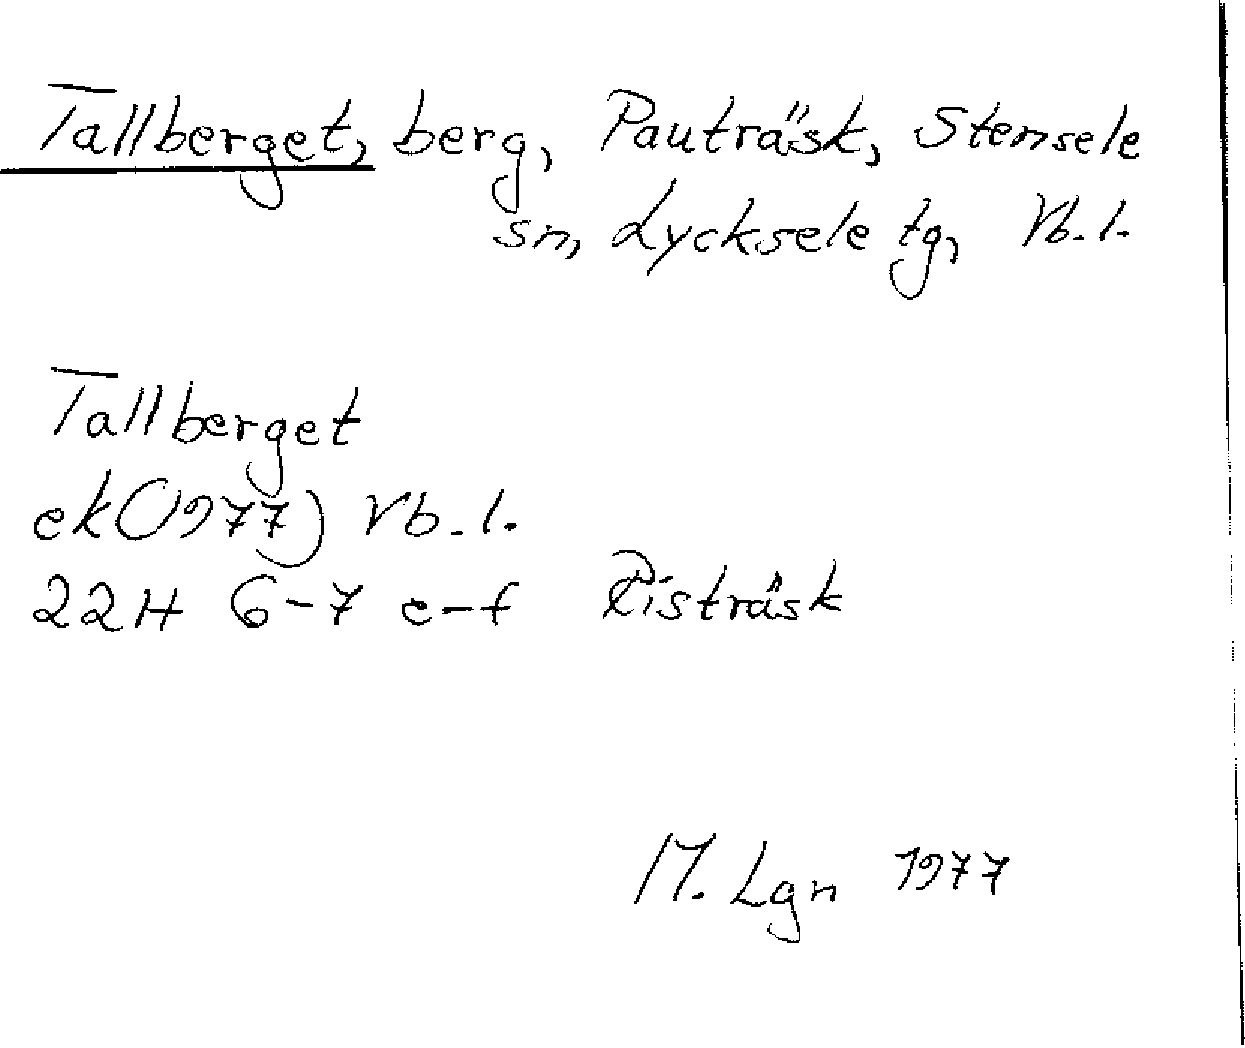 Tallberget, berg, Pauträsk, Stensele
sn, Lycksele tg, Vb. l.
Tallberget
ek(1977) Vb. l.
22H 6-7 e-f Risträsk
M. Lgn 1977